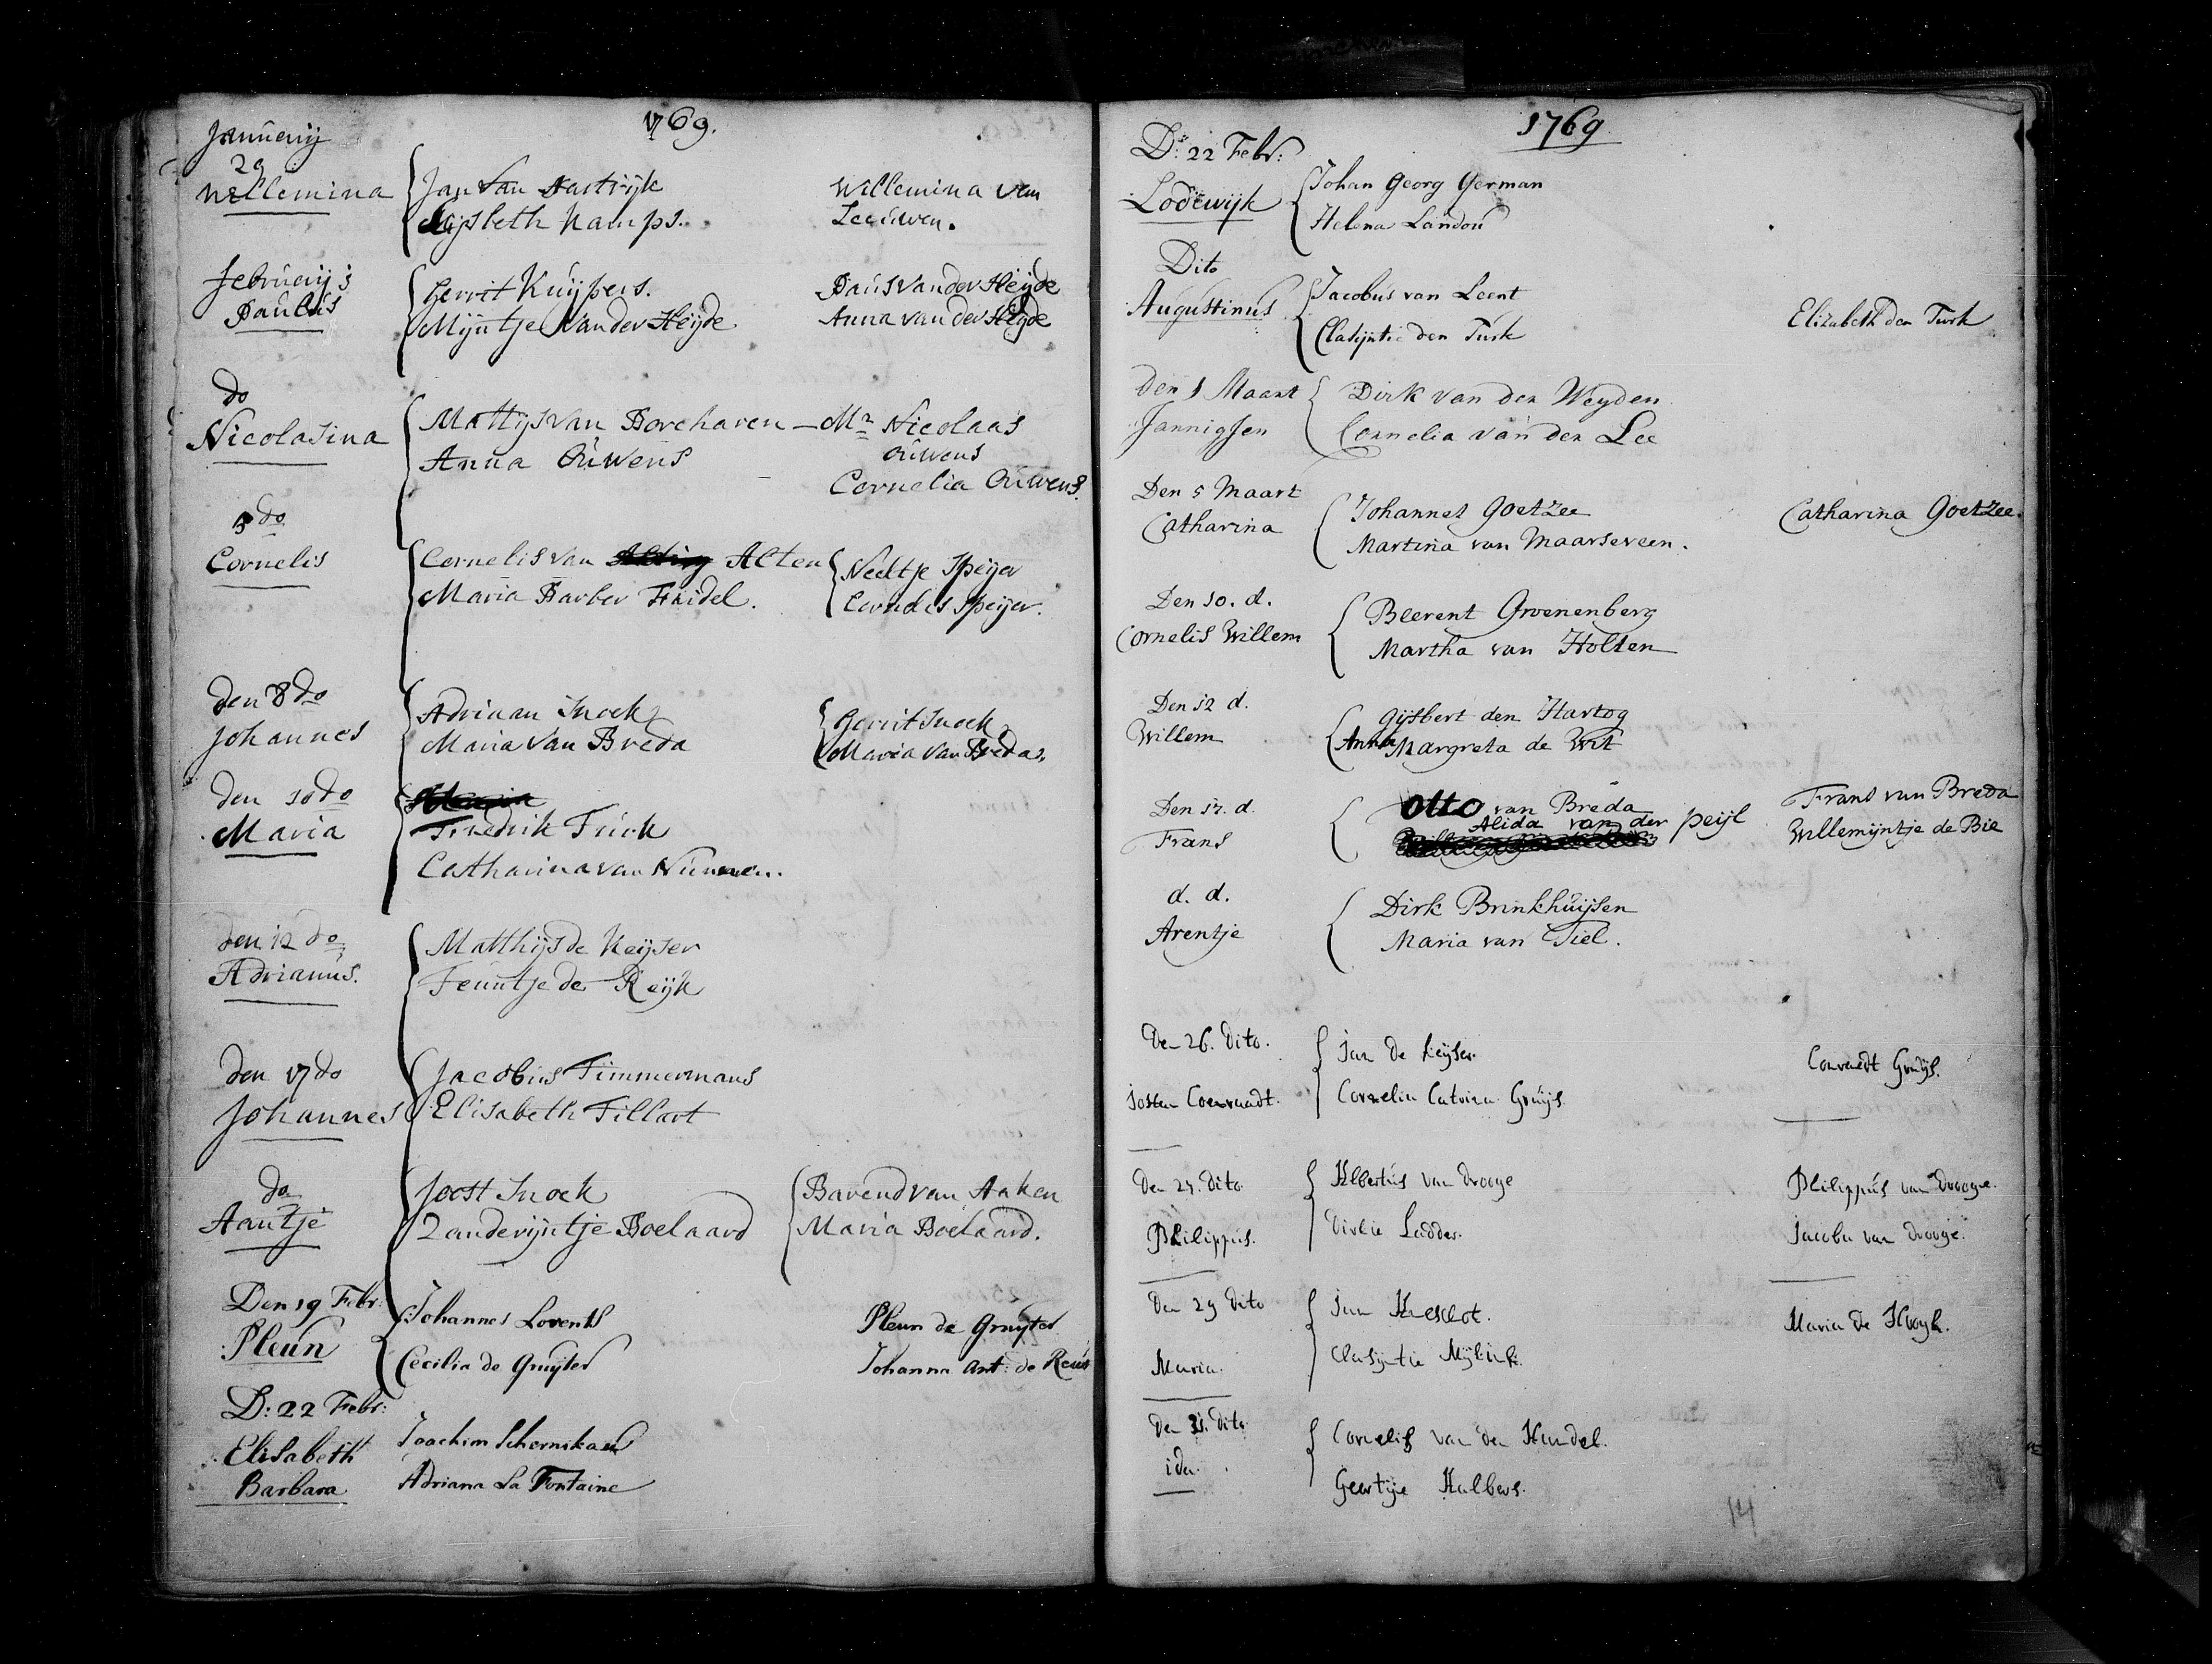 1769.
Januerij
29
Willemina
Jan van Hartrijk
Lijsbeth Kamps.
Willemina van
Leeuwen.
Februerij 5
Paulus
Gerrit Kuijpers.
Mijntje van der Heijde
Paus van der Heijde
Anna van der Heijde
do
Nicolasina
Mattijs van Boveharen
Anna Ouwens
Mr Nicolaas
Ouwens
Cornelia Ouwens.
5 do
Cornelis
Cornelis van Alten
Maria Barber Fridel.
Neeltje Speijer
Cornelis Speijer.
den 8 do
Johannes
Adriaan Snoek
Maria van Breda
Gerrit Snoek
Maria van Breda.
den 10 do
Maria
Fredrik Frick
Catharina van
den 12 do
Adrianus.
Matthijs de Keijser
Teuntje de Reijk
den 17 do
Johannes
Jacobus Timmermans
Elisabeth Tillart
do
Aantje
Joost Snoek
Zanderijntje Boelaard
Barend van Aaken
Maria Boelaard.
Den 19 Febr:
Pleun
Johannes Lorents
Cecilia de Gruyter
Pleun de Gruyter
Johanna Ant: de Reus
D: 22 Febr:
Elisabeth
Barbara
Joachim Schernikau
Adriana La Fontaine
1769
Ds: 22 Febr:
Lodewijk
Johan Georg German
Helena Landou
Dito
Augustinus
Jacobus van Leent
Clasijntie den Turk
Elizabeth den Turk
Den 1 Maart
Jannigjen
Dirk van der Weyden
Cornelia van der Lee
Den 5 Maart
Catharina
Johannes Goetzee
Martina van Maarseveen.
Catharina Goetzee.
Den 10. d.
Cornelis Willem
Beerent Groenenberg
Martha van Holten
Den 12 d.
Willem
Gijsbert den Hartog
Anna Margreta de Wit
Den 17. d.
Frans
Otto van Breda
Alida van der Peijl
Frans van Breda
Willemijntje de Bie
d. d.
Arentje
Dirk Brinkhuijsen
Maria van Tiel.
Den 26. dito.
Josten Coenraadt.
Jan de Keyser.
Cornelia Catrina Gruijs.
Conraedt Gruijs.
Den 27. dito.
Philippus.
Albertus van Drooge
Dirkie Ladder.
Philippus van Drooge.
Jacoba van Drooge.
Den 29 dito
Maria.
Jan
Clasijntie
Maria de Hoogh.
Den 31. dito.
ida.
Cornelis van den Hendel.
Geertije Halbers.
14